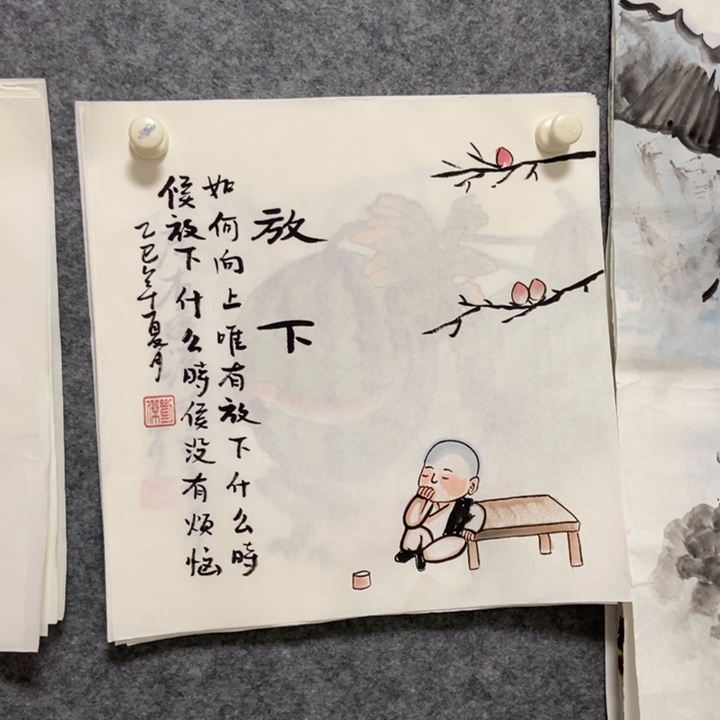 放下
如何向上唯有放下什么時
候放下什么時候没有煩惱
乙巳年夏月